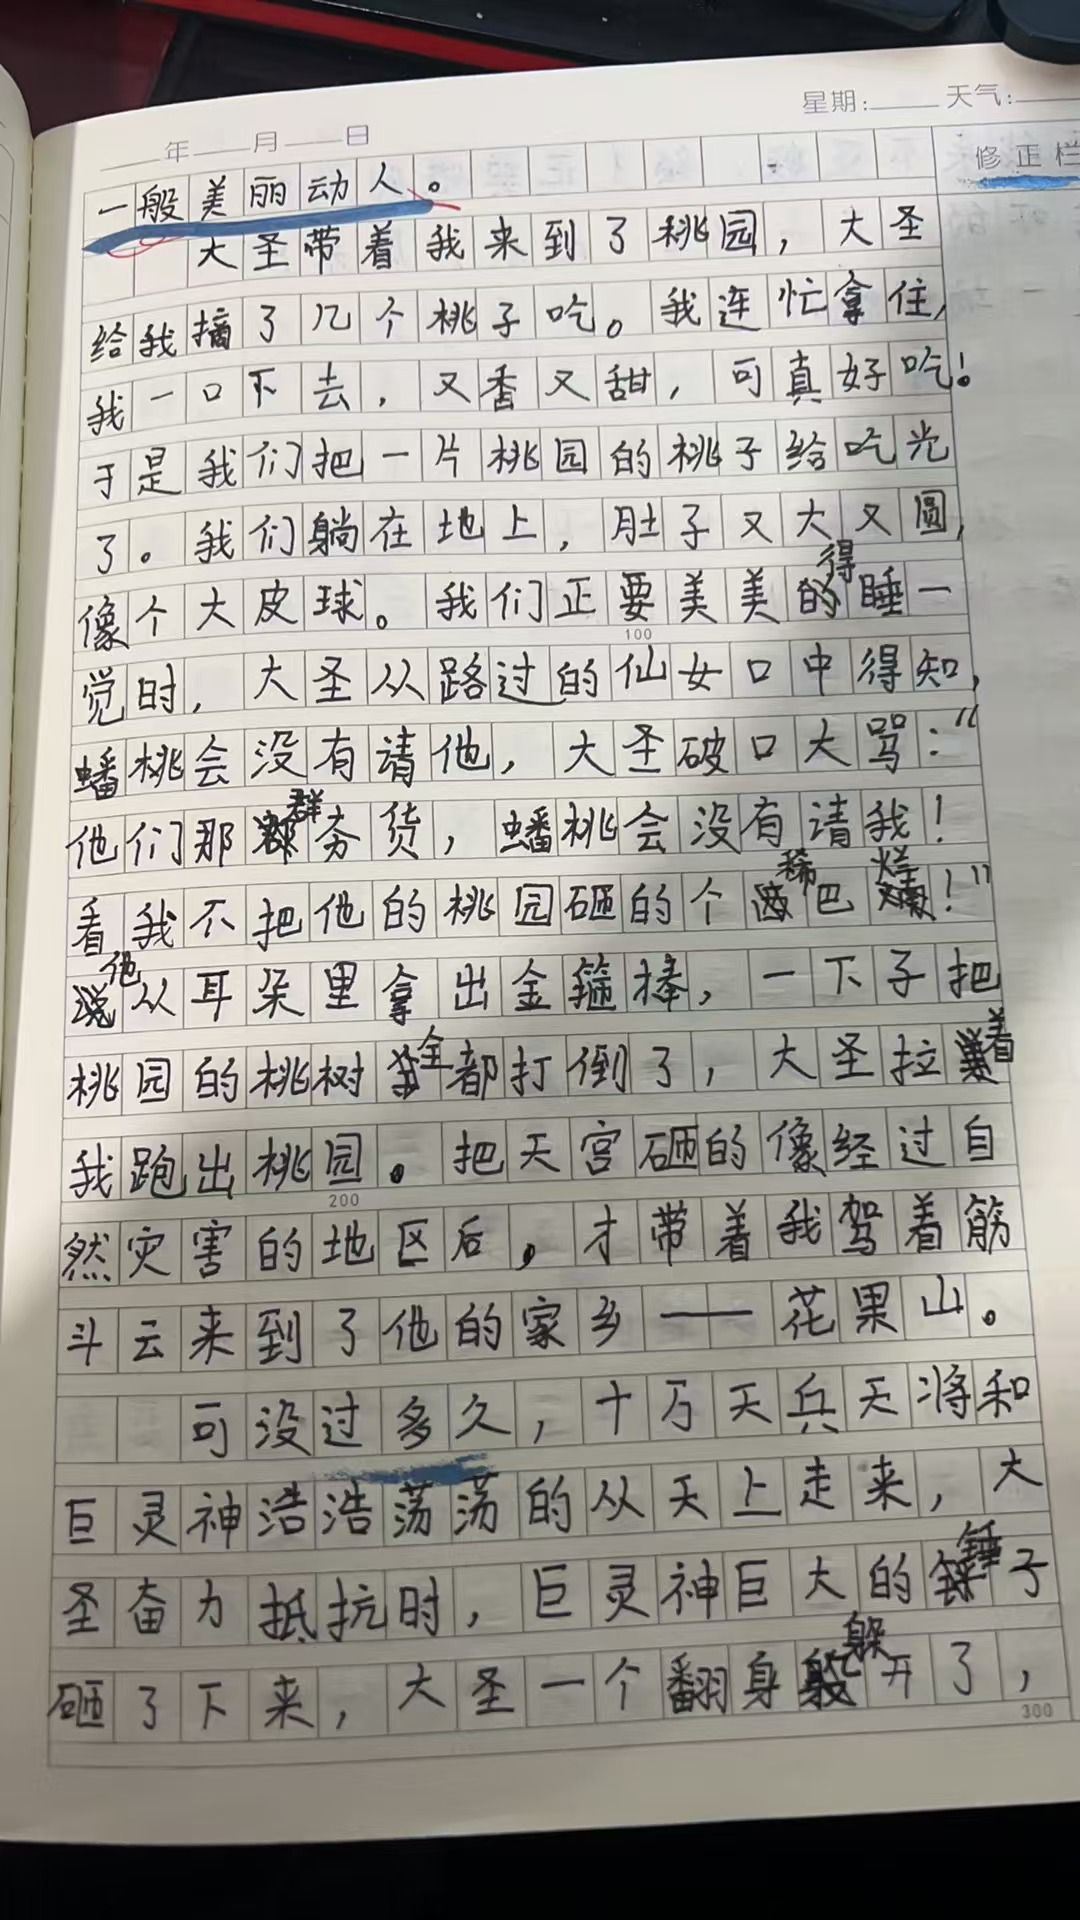 星期:____ 天气:____
____年____月____日
修正栏
一般美丽动人。
大圣带着我来到了桃园，大圣
给我摘了几个桃子吃。我连忙拿住，
我一口下去，又香又甜，可真好吃！
于是我们把一片桃园的桃子给吃光
了。我们躺在地上，肚子又大又圆，
像个大皮球。我们正要美美得睡一
100
觉时，大圣从路过的仙女口中得知，
蟠桃会没有请他，大圣破口大骂：“
他们那群夯货，蟠桃会没有请我！
看我不把他的桃园砸的个稀巴烂！”
他从耳朵里拿出金箍棒，一下子把
桃园的桃树全都打倒了，大圣拉着
我跑出桃园。把天宫砸的像经过自
200
然灾害的地区后，才带着我驾着筋
斗云来到了他的家乡——花果山。
可没过多久，十万天兵天将和
巨灵神浩浩荡荡的从天上走来，大
圣奋力抵抗时，巨灵神巨大的锤子
砸了下来，大圣一个翻身躲开了，
300